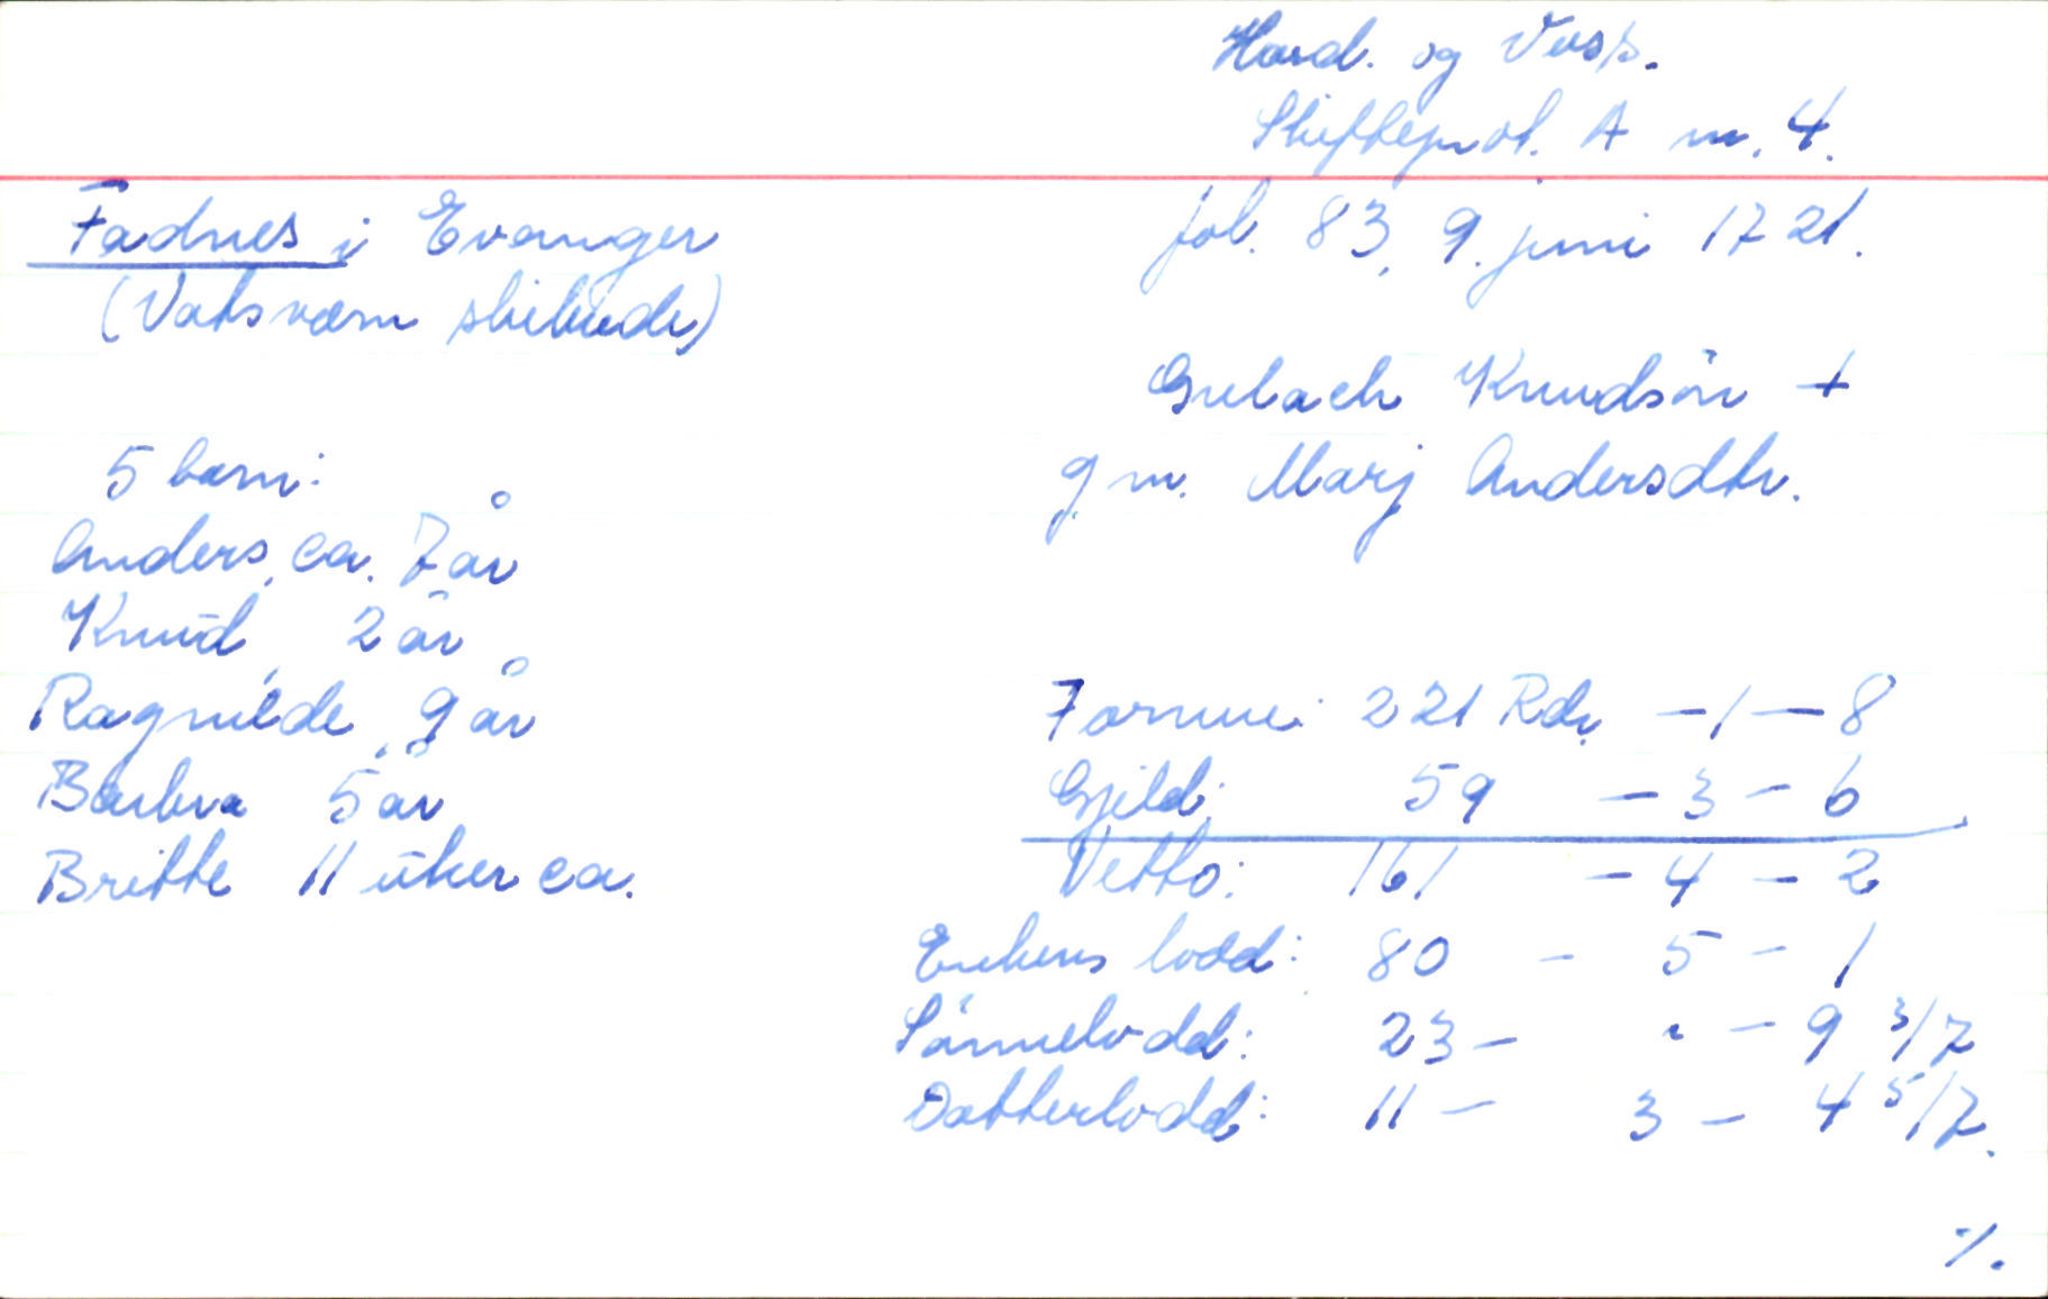 Hard. og Voss.
Skifteprot. A nr. 4.
fol. 83, 9. juni 1721.
Fadnes i Evanger
(Vatsværn skibrede)
Gulach Knudsön +
g m. Marj Andersdtr.
5 barn:
Anders, ca. 7 år
Knud, 2 år
Ragnilde, 9 år
Barbra 5 år
Britte 11 uker ca.
Formue: 221 Rdr. - 1 - 8
Gjeld: 59 - 3 - 6
Netto: 161 - 4 - 2
Enkens lodd: 80 - 5 - 1
Sönnelodd: 23 - " - 9 3/7
Datterlodd: 11 - 3 - 4 5/7.
./.